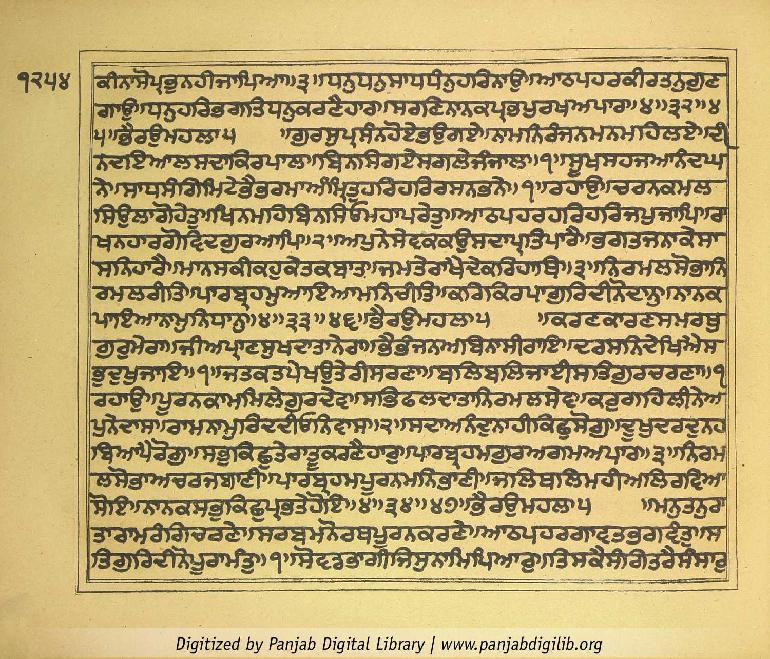 ੧੨੫੪
ਕੀਨਾਸੋਪ੍ਰਭੁਨਹੀਜਾਪਿਆ॥੩॥ਧਨੁਧਨੁਸਾਧਧੰਨੁਹਰਿਨਾਉ॥ਆਠਪਹਰਕੀਰਤਨੁਗੁਣ
ਗਾਉ॥ਧਨੁਹਰਿਭਗਤਿਧਨੁਕਰਣੈਹਾਰ॥ਸਰਣਿਨਾਨਕਪ੍ਰਭਪੁਰਖਅਪਾਰ॥੪॥੩੨॥੪
੫॥ਭੈਰਉਮਹਲਾ੫ ॥ਗੁਰਸੁਪ੍ਰਸੰਨਹੋਏਭਉਗਏ॥ਨਾਮਨਿਰੰਜਨਮਨਮਹਿਲਏ॥ਦੀ
ਨਦਇਆਲਸਦਾਕਿਰਪਾਲ॥ਬਿਨਸਿਗਏਸਗਲੇਜੰਜਾਲ॥੧॥ਸੂਖਸਹਜਆਨੰਦਘ
ਨੇ॥ਸਾਧਸੰਗਿਮਿਟੇਭੈਭਰਮਾਅੰਮ੍ਰਿਤੁਹਰਿਹਰਿਰਸਨਭਨੇ॥੧॥ਰਹਾਉ॥ਚਰਨਕਮਲ
ਸਿਉਲਾਗੋਹੇਤੁ॥ਖਿਨਮਹਿਬਿਨਸਿਓਮਹਾਪਰੇਤੁ॥ਆਠਪਹਰਹਰਿਹਰਿਜਪੁਜਾਪਿ॥ਰਾ
ਖਨਹਾਰਗੋਵਿਦਗੁਰਆਪਿ॥੨॥ਅਪੁਨੇਸੇਵਕਕਉਸਦਾਪ੍ਰਤਿਪਾਰੈ॥ਭਗਤਜਨਾਕੇਸਾ
ਸਨਿਹਾਰੈ॥ਮਾਨਸਕੀਕਹੁਕੇਤਕਬਾਤ॥ਜਮਤੇਰਾਖੈਦੇਕਰਿਹਾਥ॥੩॥ਨਿਰਮਲਸੋਭਾਨਿ
ਰਮਲਰੀਤਿ॥ਪਾਰਬ੍ਰਹਮੁਆਇਆਮਨਿਚੀਤਿ॥ਕਰਿਕਿਰਪਾਗੁਰਿਦੀਨੋਦਾਨੁ॥ਨਾਨਕ
ਪਾਇਆਨਾਮੁਨਿਧਾਨੁ॥੪॥੩੩॥੪੬॥ਭੈਰਉਮਹਲਾ੫ ॥ਕਰਣਕਾਰਣਸਮਰਥੁ
ਗੁਰੁਮੇਰਾ॥ਜੀਅਪ੍ਰਾਣਸੁਖਦਾਤਾਨੇਰਾ॥ਭੈਭੰਜਨਅਬਿਨਾਸੀਰਾਇ॥ਦਰਸਨਿਦੇਖਿਐਸ
ਭੁਦੁਖੁਜਾਇ॥੧॥ਜਤਕਤਪੇਖਉਤੇਰੀਸਰਣਾ॥ਬਲਿਬਲਿਜਾਈਸਤਿਗੁਰਚਰਣਾ॥੧
ਰਹਾਉ॥ਪੂਰਨਕਾਮਮਿਲੇਗੁਰਦੇਵ॥ਸਭਿਫਲਦਾਤਾਨਿਰਮਲਸੇਵ॥ਕਰੁਗਹਿਲੀਨੇਅ
ਪੁਨੇਦਾਸ॥ਰਾਮਨਾਮੁਰਿਦਦੀਓਨਿਵਾਸ॥੨॥ਸਦਾਅਨੰਦੁਨਾਹੀਕਿਛੁਸੋਗੁ॥ਦੂਖੁਦਰਦੁਨਹ
ਬਿਆਪੈਰੋਗੁ॥ਸਭੁਕਿਛੁਤੇਰਾਤੂਕਰਣੈਹਾਰੁ॥ਪਾਰਬ੍ਰਹਮਗੁਰਅਗਮਅਪਾਰ॥੩॥ਨਿਰਮ
ਲਸੋਭਾਅਚਰਜਬਾਣੀ॥ਪਾਰਬ੍ਰਹਮਪੂਰਨਮਨਿਭਾਣੀ॥ਜਲਿਥਲਿਮਹੀਅਲਿਰਵਿਆ
ਸੋਇ॥ਨਾਨਕਸਭੁਕਿਛੁਪ੍ਰਭਤੇਹੋਇ॥੪॥੩੪॥੪੭॥ਭੈਰਉਮਹਲਾ੫ ॥ਮਨੁਤਨੁਰਾ
ਤਾਰਾਮਰੰਗਿਚਰਣੇ॥ਸਰਬਮਨੋਰਥਪੂਰਨਕਰਣੇ॥ਆਠਪਹਰਗਾਵਤਭਗਵੰਤੁ॥ਸ
ਤਿਗੁਰਿਦੀਨੋਪੂਰਾਮੰਤੁ॥੧॥ਸੋਵਡਭਾਗੀਜਿਸੁਨਾਮਿਪਿਆਰੁ॥ਤਿਸਕੈਸੰਗਿਤਰੈਸੰਸਾਰੁ
Digitized by Panjab Digital Library | www.panjabdigilib.org